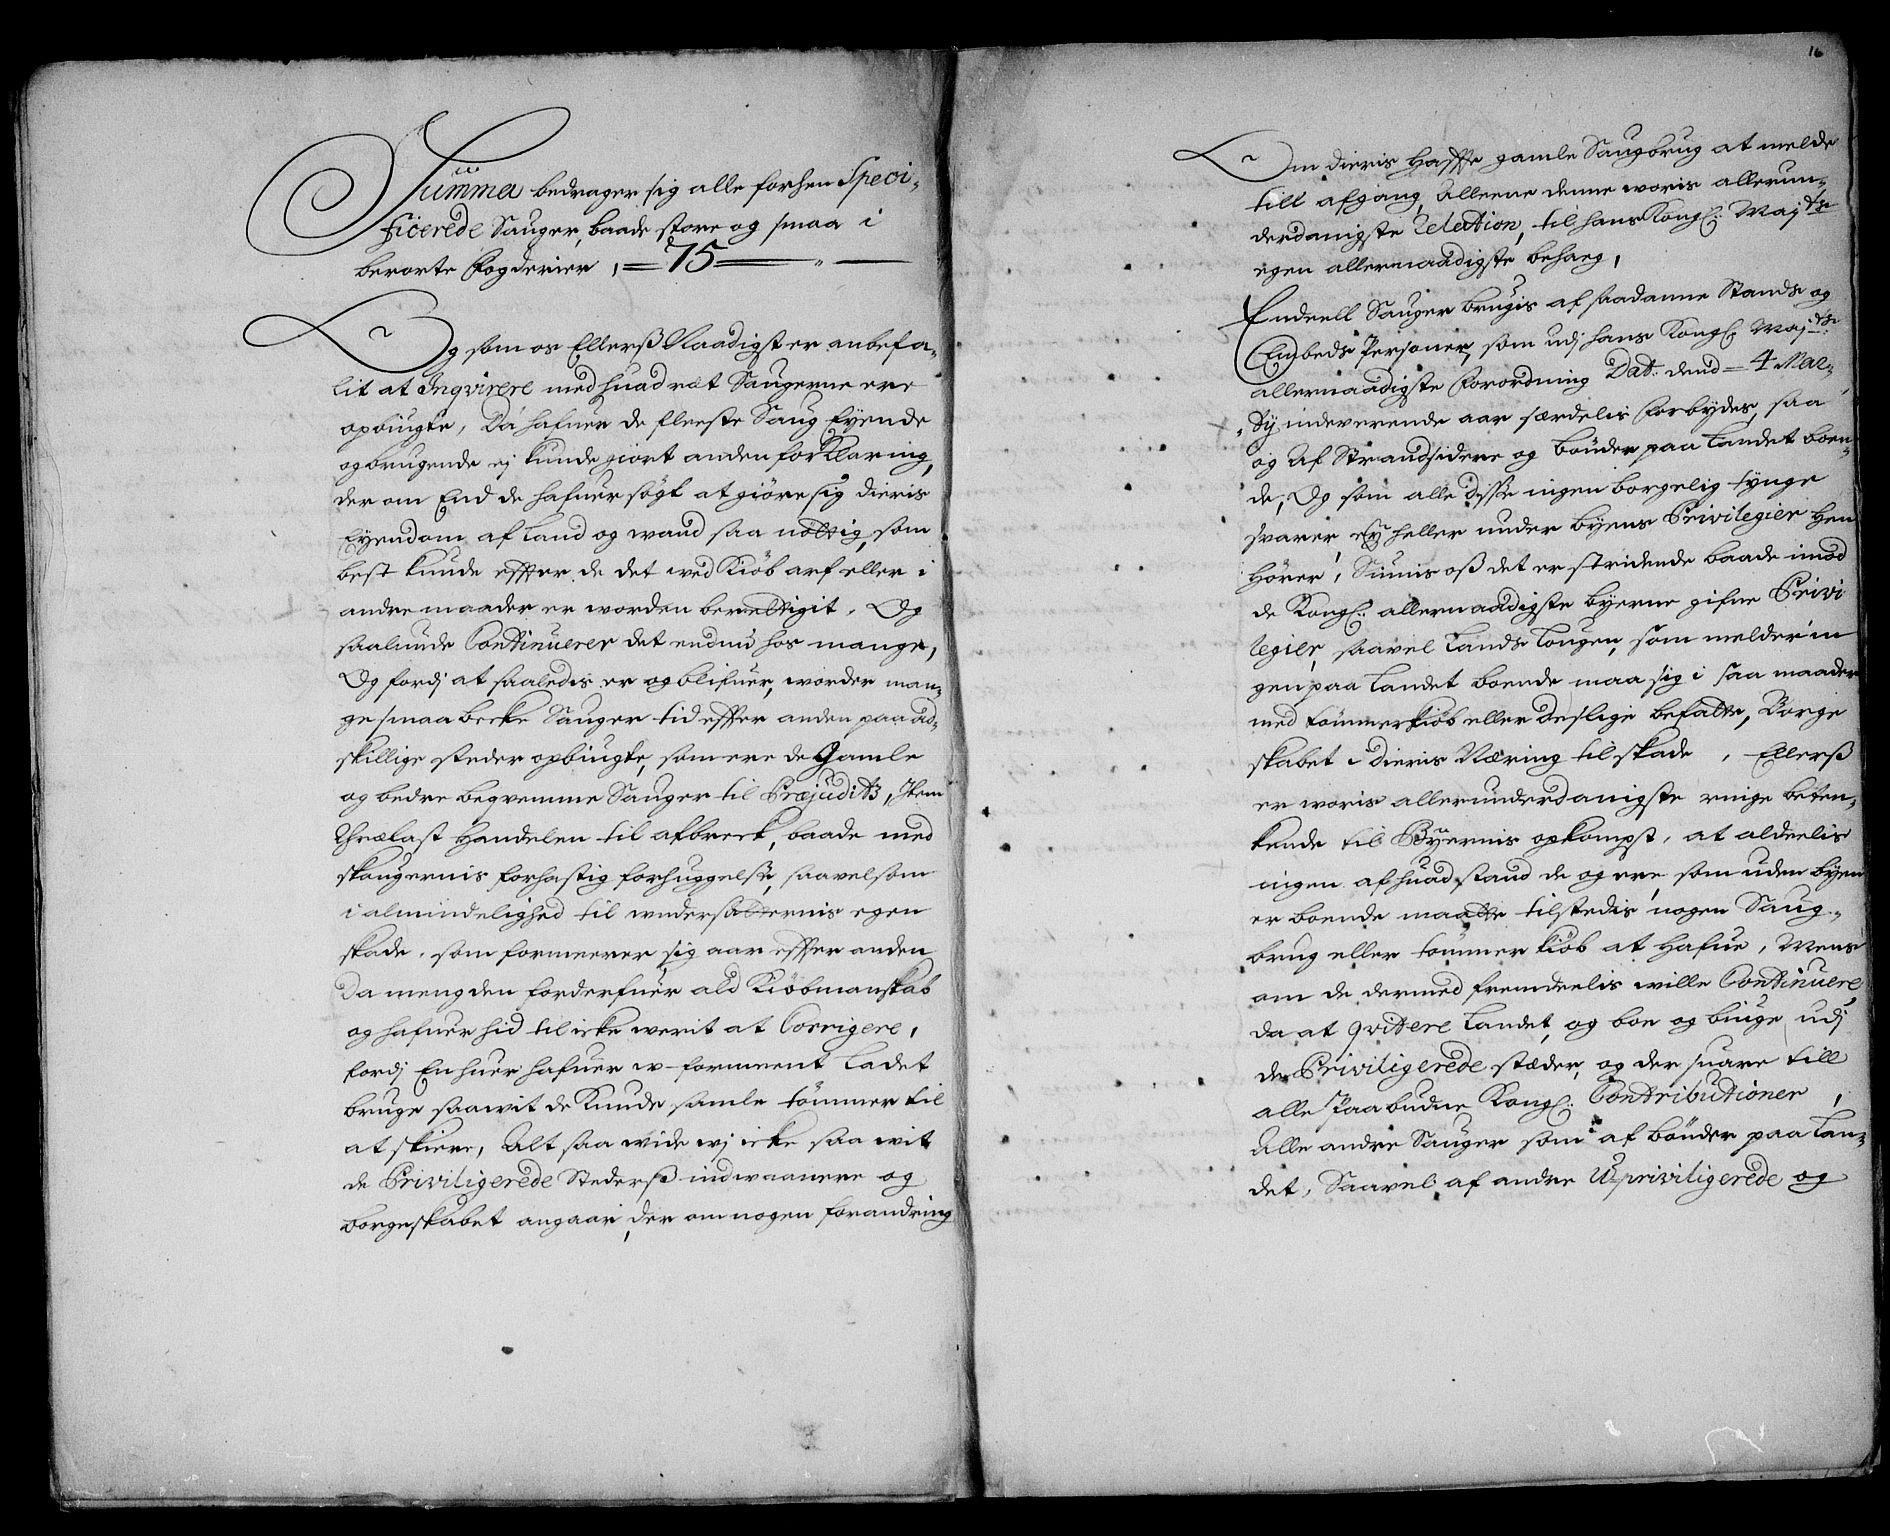 Summa bedrager sig alle forhen Speci-
ficerede Sauger, baade store og smaa i
berørte Fogderier, = 75 =
Og som os Ellerß Naadigst er anbefa-
lit at Inqvirere med huad ræt Saugerne ere
opbiugte, Da hafuer de fleeste Saug Eyende
og brugende ej kunde giort anden forKlaring,
der om End de hafuer søgt at giøre sig dieris
Eyendom af Land og wand saa nøttig, som
best kunde effter de det wed Kiøb arf eller i
andre maader er worden berettigit. Og
saalunde Continuerer det endnu hos mange,
Og fordj at saaledis er og blifuer, worder man-
ge smaa becke Sauger tid effter anden paa ad-
skillige steder opbiugte, som ere de Gamle
og bedre beqvemme Sauger til Præjuditz, Item
Thrælast Handelen til afbreck, baade med
skougernis forhastig forhuggelse, saavelsom
i almindelighed til undersatternis egen
skade, som formeerer sig aar effter anden
Da mengden forderfuer ald Kiøbmanskab
og hafuer hid til icke werit at Corrigere,
fordj En huer hafuer w-formeent ladet
bruge saawit de Kunde samle tømmer til
at skiere, Alt saa wide wj icke saa wit
de Priviligerede Stederß indwaanere og
borgeskabet angaar, der om nogen forandring
16
Om dieris Haffte gamle Saugbrug at melde
till afgang, Alleene denne woris allerun-
derdanigste Relation, til hans Kongl: Maj:ts
egen allernaadigste behaeg,
Endeell Sauger brugis af saadanne Stands og
Embeds Personer, som udj hans Kongl: Maj:ts
allernaadigste Forordning Dat: dend = 4 Mar-
tij indeverende aar særdelis forbydes, saa
og Af Strandsidere og bønder paa Landet boen-
de, Og som alle disse ingen borgelig tynge
svarer, ey heller under byens Privilegier Hen
Hører, Siunis oß det er stridende baade imod
de Kongl: allernaadigste byerne gifne Privi
legier, saavel Lands Lougen, som melder in
gen paa Landet boende maa sig i saa maader
med tømmerkiøb eller deslige befatte, Borge
skabet i dieris Næring til skade, Ellerß
er woris allerunderdanigste ringe beten-
kende til Byernis opkompst, at aldeelis
ingen af huad stand de og ere, som uden byen
er boende maatte tilstedis nogen Saug-
brug eller tømmer kiøb at Hafue, Mens
om de dermed fremdeelis wille Continuere
da at qvittere Landet, og boe og biuge udj
de Priviligerede stæder, og der suare till
alle Paabudne Kongl: Contributioner,
Alle andre Sauger som af bønder paa Lan-
det, Saavel af andre Upriviligerede og